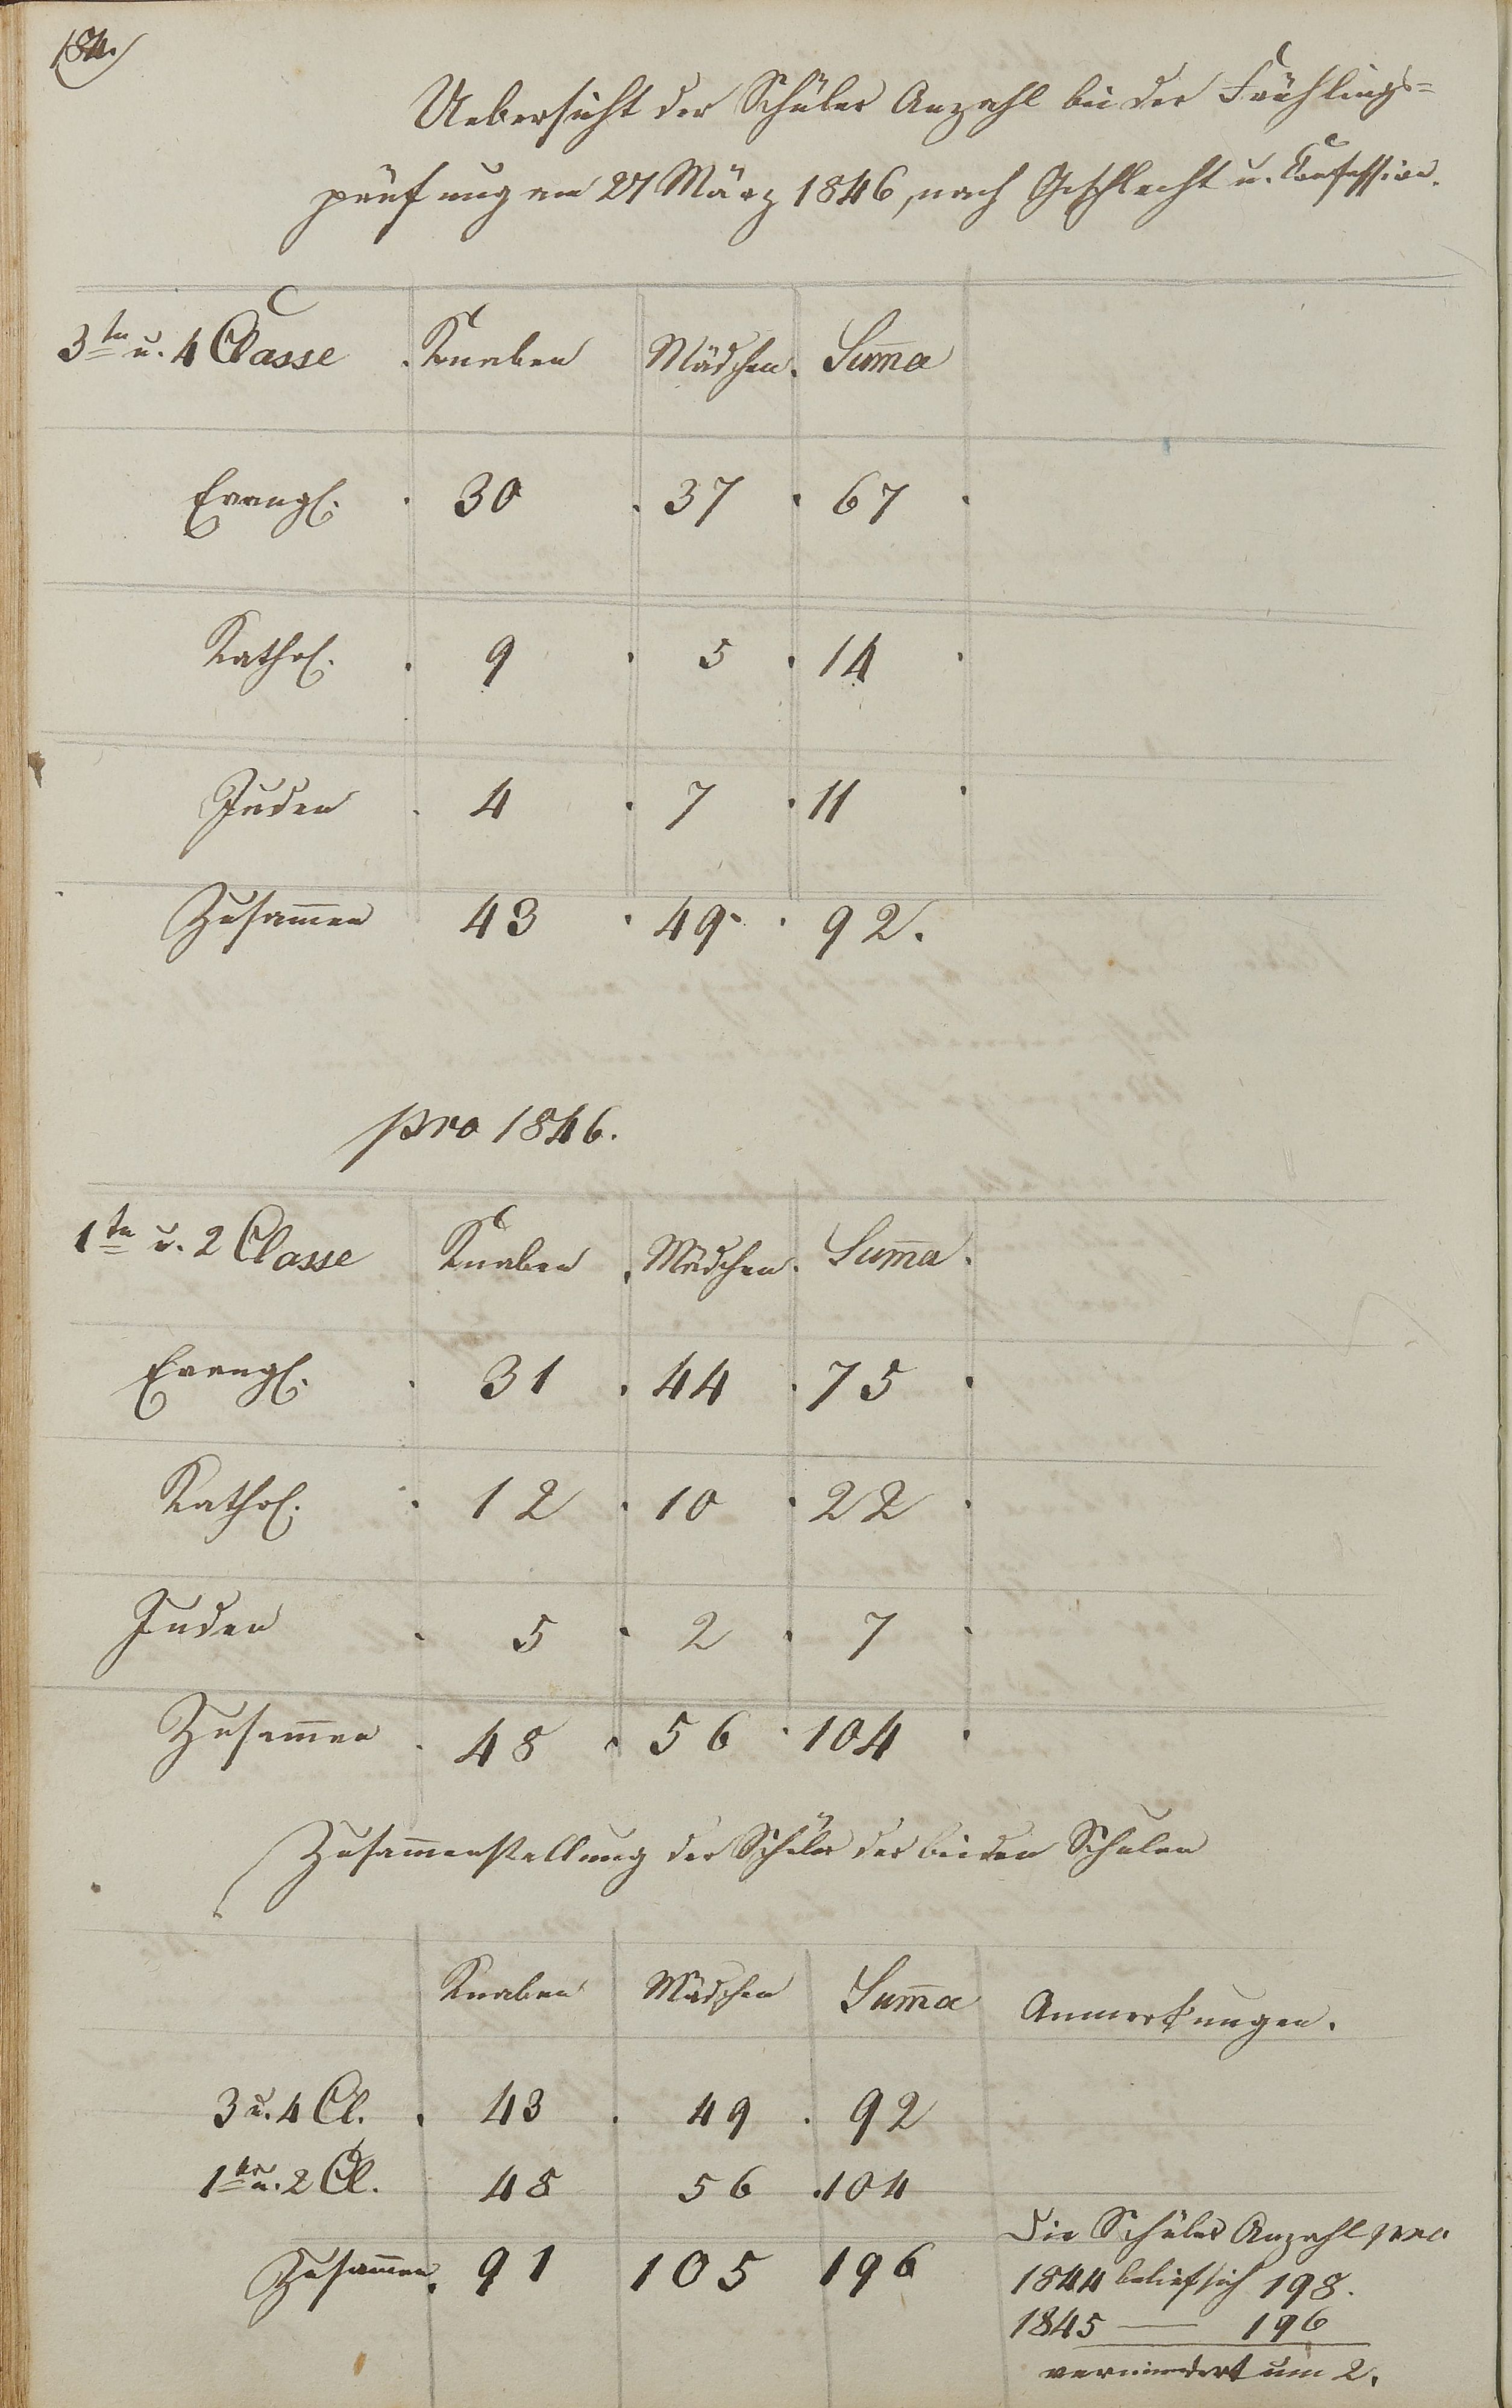 184.
Uebersicht der Schüler Anzahl bei der Frühlings=
prüfung am 27 März 1846, nach Geschlecht u. Confession.
3te u. 4 Classe . Knaben Mädchen. Sum̄a
Evangl. . 30 . 37 . 67 .
Kathol. . 9 . 5 . 14 .
Juden . 4 . 7 . 11 .
Zusam̄en 43 . 49. . 92.
pro 1846.
1te u. 2 Classe Knaben . Mädchen. Sum̄a.
Evangl. . 31 . 44 . 75 .
Kathol. . 12 . 10 . 22 .
Juden . 5 . 2 . 7 .
Zusam̄en . 48 . 56 . 104 .
Zusam̄enstellung der Schüler der beiden Schulen
Knaben Mädchen Sum̄a Anmerkungen.
3 u. 4 Cl. . 43 . 49 . 92
1te u. 2 Cl. 48 56 .104
Zusam̄en. 91 105 196
Die Schüler Anzahl pro
1844 belief sich 198.
1845 — 196
vermindert um 2.